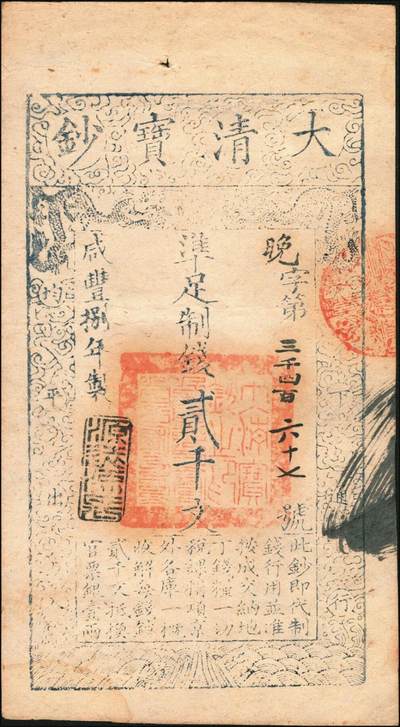 大清寶鈔
晚字第三千四百六十七號
準足制錢貳千文
咸豐捌年製
下通行
均平出
此鈔即代制
錢行用並准
按成交納地
丁錢糧一切
稅課捐項京
外各庫一概
收解每錢鈔
貳千文抵換
官票銀壹兩